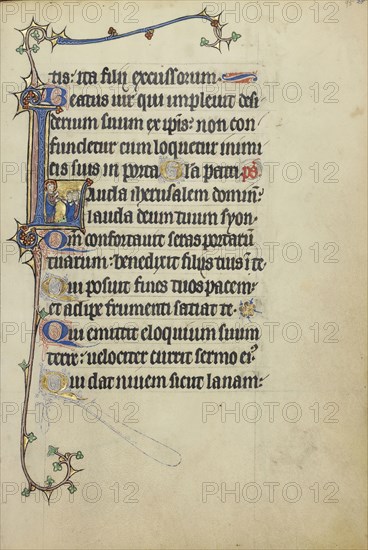 tis: ita filij excussorum
Beatus uir qui impleuit desi
derium suum ex ipīs: non con
fundetur cum loquetur inimi
cis suis in porta Gl̄a patri. ps̄
Lauda iherusalem dominū:
lauda deum tuum syon.
Qm̄ confortauit seras portarū
tuarum: benedixit filijs tuis ī te
Qui posuit fines tuos pacem:
et adipe frumenti satiat te.
Qui emittit eloquium suum
terre: uelociter currit sermo ei⁹.
Qui dat niuem sicut lanam:
PHOTO 12